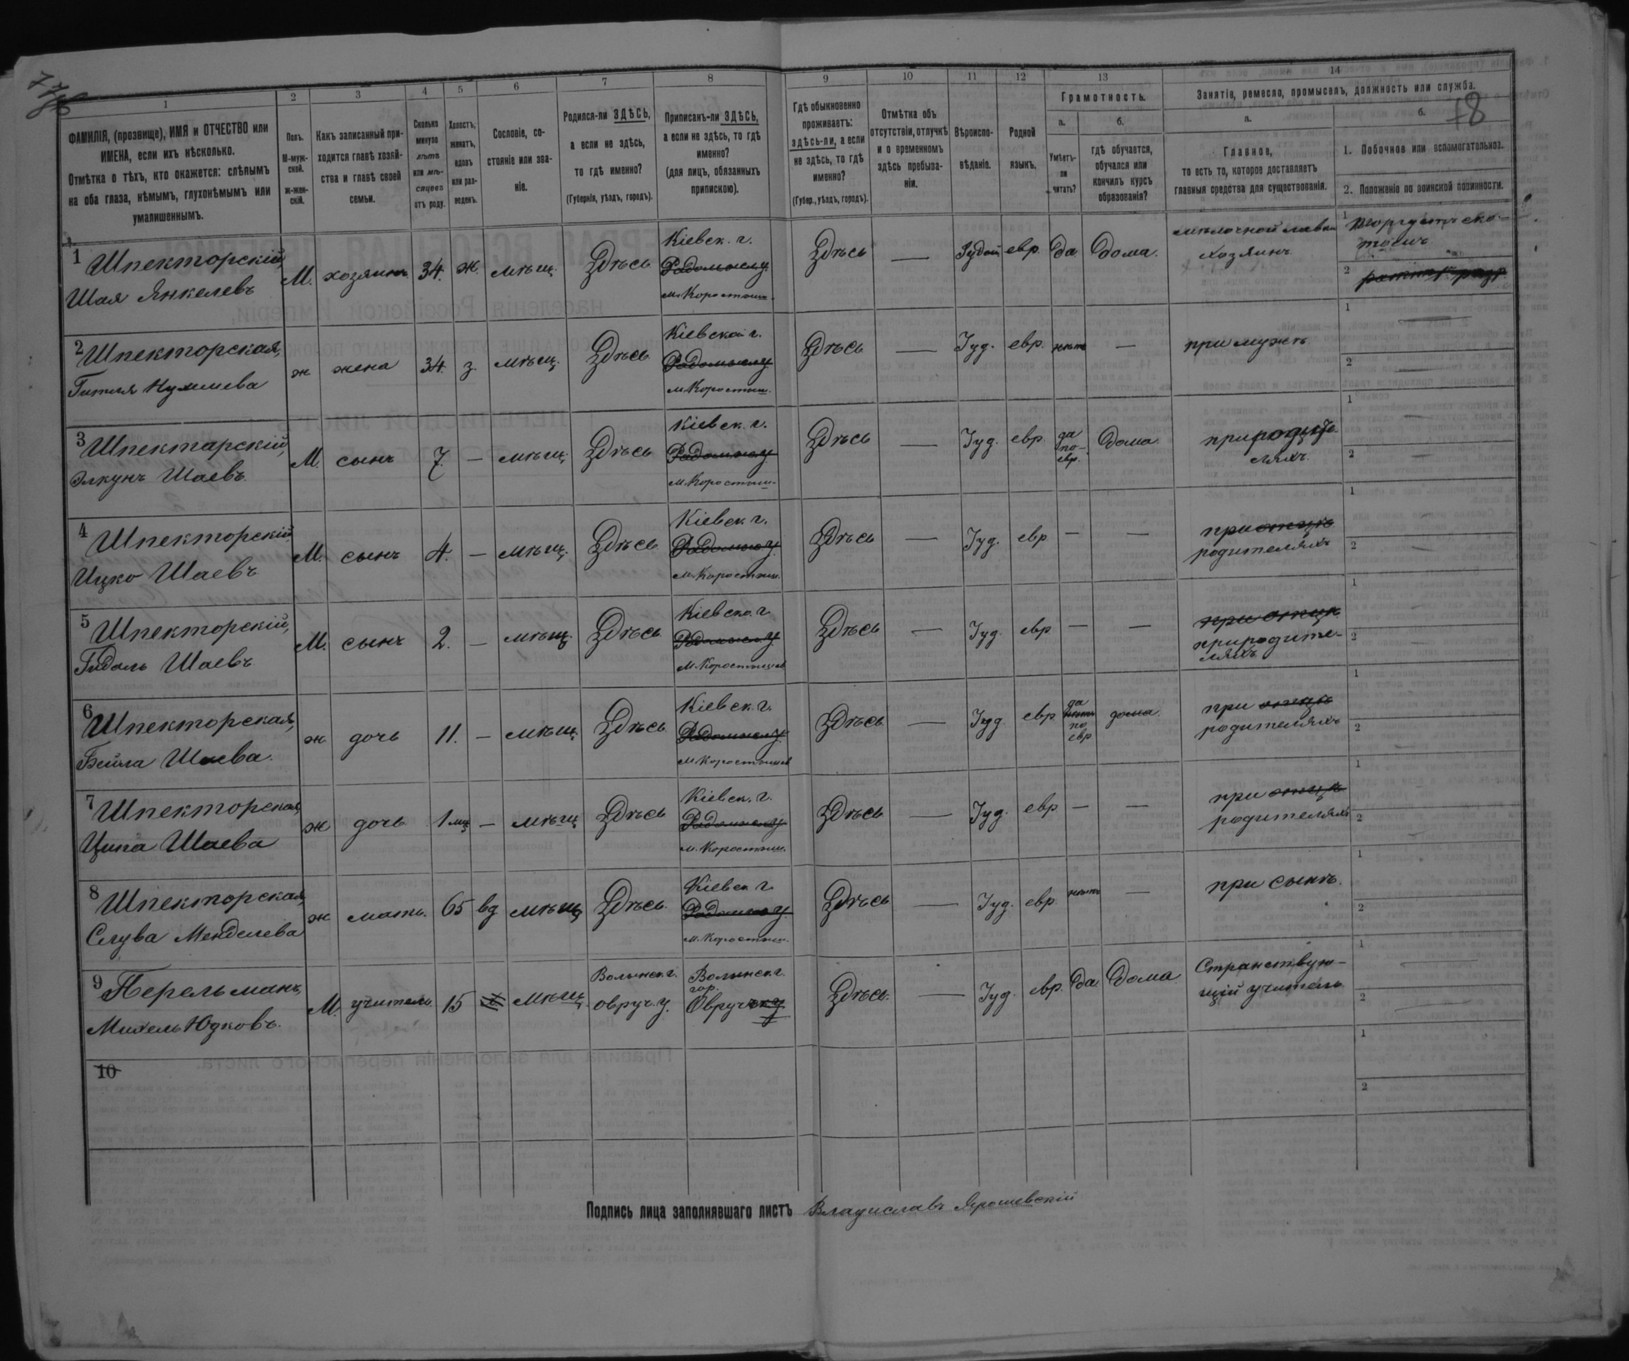 78
1 2 3 4 5 6 7 8 9 10 11 12 13 14
ФАМИЛІЯ, (прозвище), ИМЯ и ОТЧЕСТВО или
ИМЕНА, если ихъ нѣсколько.
Отмѣтка о тѣхъ, кто окажется: слѣпымъ
на оба глаза, нѣмымъ, глухонѣмымъ или
умалишеннымъ.
Полъ.
М-муж-
ской.
Ж-жен-
скій.
Какъ записанный при-
ходится главѣ хозяй-
ства и главѣ своей
семьи.
Сколько
минуло
лѣтъ
или мѣ-
сяцевъ
отъ роду.
Холостъ,
женатъ,
вдовъ
или раз-
веденъ.
Сословіе, со-
стояніе или зва-
ніе.
Родился-ли ЗДѢСЬ,
а если не здѣсь,
то гдѣ именно?
(Губернія, уѣздъ, городъ).
Приписанъ-ли ЗДѢСЬ,
а если не здѣсь, то гдѣ
именно?
(для лицъ, обязанныхъ
припискою).
Гдѣ обыкновенно
проживаетъ:
здѣсь-ли, а если
не здѣсь, то гдѣ
именно?
(Губер., уѣздъ, городъ).
Отмѣтка объ
отсутствіи, отлучкѣ
и о временномъ
здѣсь пребыва-
ніи.
Вѣроиспо-
вѣданіе.
Родной
языкъ.
Грамотность.
а.
Умѣетъ-
ли
читать?
б.
гдѣ обучается,
обучался или
кончилъ курсъ
образованія?
Занятіе, ремесло, промыселъ, должность или служба.
а.
Главное,
то есть то, которое доставляетъ
главныя средства для существованія.
б.
1. Побочное или вспомогательное.
2. Положеніе по воинской повинности.
1 Шпекторскій,
Шая Янкелевъ
М. хозяинъ 34. ж. мѣщ. Здѣсь
Кіевск. г.
Радомыслу
м. Коростыш.
Здѣсь Іудей евр. да Дома.
мѣлочной лавки
хозяинъ
1
2
2 Шпекторская,
Гитля
ж жена 34. з. мѣщ. Здѣсь
Кіевской г.
Радомыслу
м. Коростыш.
Здѣсь — Іуд. евр. нѣтъ —
при мужѣ
1 —
2 —
3 Шпектарскій,
Элкунъ Шаевъ.
М. сынъ 7. — мѣщ. Здѣсь
Кіевск. г.
Радомыслу
м. Коростыш.
Здѣсь — Іуд. евр.
да
по-
евр.
Дома.
при родите-
ляхъ.
1 —
2 —
4 Шпекторскій
Ицко Шаевъ
М. сынъ 4. — мѣщ. Здѣсь
Кіевск. г.
Радомыслу
м. Коростыш.
Здѣсь — Іуд. евр — —
при отцѣ
родителяхъ
1 —
2 —
5 Шпекторскій,
Гидаль Шаевъ
М. сынъ 2. — мѣщ. Здѣсь
Кіевск. г.
Радомыслу
м. Коростышев
Здѣсь — Іуд. евр — —
при отцѣ
при родите-
ляхъ
1 —
2 —
6 Шпекторская,
Бейла Шаева.
ж дочь 11. — мѣщ. Здѣсь
Кіевск. г.
Радомыслу
м. Коростышев
Здѣсь — Іуд. евр
да
нѣтъ
по
евр
дома.
при отцѣ
родителяхъ
1 —
2 —
7 Шпекторская,
Ципа Шаева
ж дочь 1 мц — мѣщ Здѣсь
Кіевск. г.
Радомыслу
м. Коростыш.
Здѣсь — Іуд. евр — —
при отцѣ
родителяхъ
1 —
2 —
8 Шпекторская,
Слува Менделева
ж мать. 65 вд мѣщ Здѣсь.
Кіевск г.
Радомыслу
м. Коростыш.
Здѣсь — Іуд. евр. нѣтъ —
при сынѣ.
1 —
2 —
9 Перельманъ,
Михель Юдковъ.
М. учитель 15 мѣщ
Волынск г.
овруч. у.
Волынск г.
гор.
Овручску
Здѣсь. — Іуд. евр. Да Дома
Странствую-
щій учитель
1 —
2 —
10
1
2
Подпись лица заполнявшаго листъ Владиславъ Ярошевскій